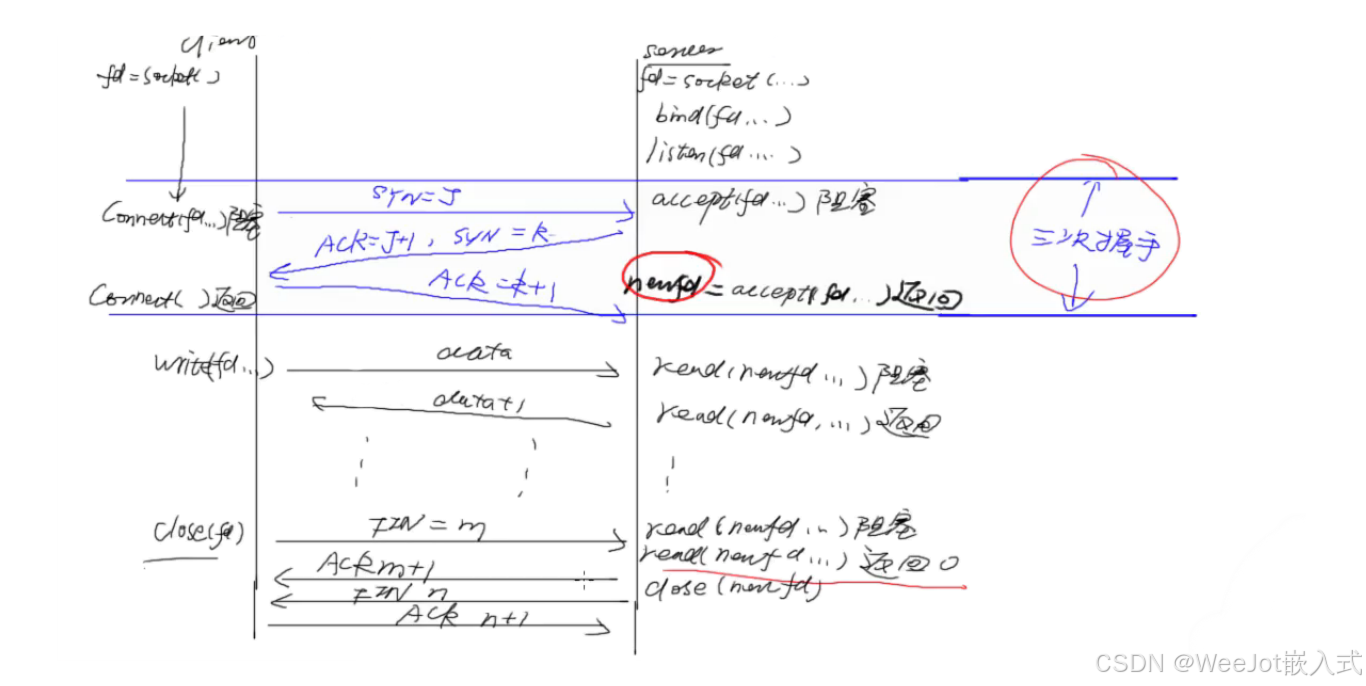 client
server
fd=socket( )
fd=socket(...)
bind(fd...)
listen(fd....)
SYN=J
accept(fd...) 阻塞
Connect(fd...)阻塞
ACK=J+1, SYN=k
三次握手
ACK=k+1
Connect( )返回
newfd=accept(fd...)返回
write(fd...)
data
read(newfd...)阻塞
data+1
read(newfd,...)返回
close(fd)
FIN=m
read(newfd...)阻塞
ACK m+1
read(newfd...)返回0
FIN n
close(newfd)
ACK n+1
CSDN @WeeJot嵌入式